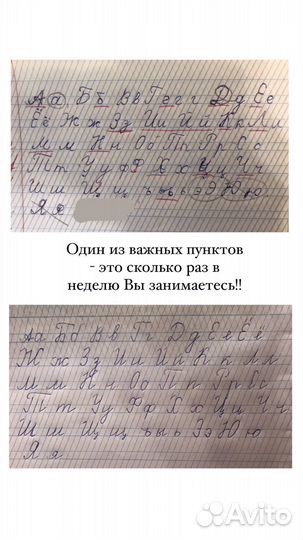 Аа Бб Вв Гггг Дд Ее
Ёё Жж Зз Ии Йй Кк Лл
Мм Нн Оо Пп Рр Сс
Тт Уу Фф Хх Цц Чч
Шш Щщ ъ ы ь Ээ Юю
Яя
Один из важных пунктов
- это сколько раз в
неделю Вы занимаетесь!!
Аа Бб Вв Гг Дд Ее Ёё
Жж Зз Ии Йй Кк Лл
Мм Нн Оо Пп Рр Сс
Тт Уу Фф Хх Цц Чч
Шш Щщ ъ ы ь Ээ Юю
Яя
Avito